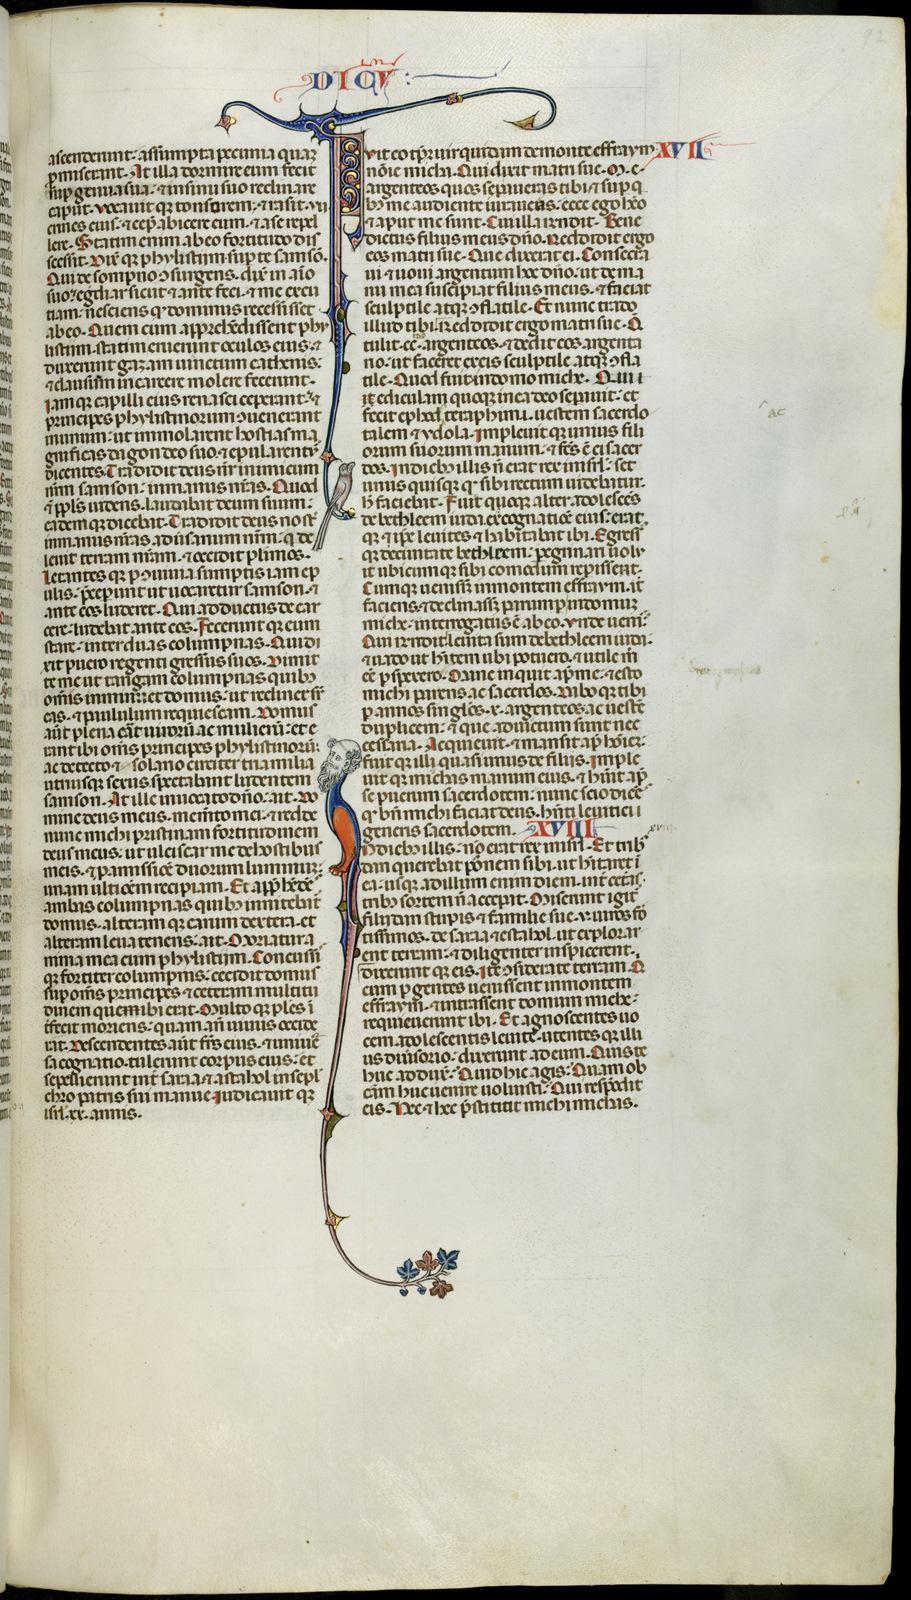 DICV
ascenderunt assumpta pecunia quam
promiserant. At illa dormire eum fecit
sup genua sua. & in sinu suo reclinare
caput. Vocauit qȝ tonsorem. & rasit. vii.
crines eius. & cepit abicere eum. & a se repel
lere. Statim enim ab eo fortitudo dis
cessit. Dixit qȝ phylistiim sup te samson.
Qui de sompno ɔsurgens. dix̄ in aīo
suo. egrediar sicut & ante feci. & me excu
tiam. nesciens qd dominus recessisset
ab eo. Quem cum apprehēdissent phy
listiim. statim eruerunt oculos eius. &
duxerunt gazam uinctum cathenis.
& clausum in carcere molere fecerunt.
Iam qȝ capilli eius renasci ceperant. &
principes phylistinorum ɔuenerant
in unum. ut immolarent hostias ma
gnificas dagon deo suo. & epularentur
dicentes. Tradidit deus nr̄ inimicum
nrm samson. in manus nr̄as. Quod
& ppl̄s uidens. laudabat deum suum.
eadem qȝ dicebat. Tradidit deus nost
in manus nr̄as. aduersarium nrm. q de
leuit terram nr̄am. & occidit plrimos.
Letantes qȝ p ɔuiuia sumptis iam ep
ulis. p̄ceperunt ut uocaretur samson. &
ante eos luderet. Qui adductus de car
cere. ludebat ante eos. Fecerunt qȝ eum
stare. inter duas columpnas. Qui di
xit puero regenti gressus suos. Dimit
te me ut tangam columpnas quibȝ
om̄is imminet domus. ut recliner sr̄
eas. & paululum requiescam. Domus
aūt plena erat uirorum ac mulierū. et e
rant ibi om̄s principes phylistinorū.
ac de tecto & solario circiter tria milia
utriusqȝ sexus spectabant ludentem
samson. At ille inuocato dn̄o. ait. Do
mine deus meus. memēto mei. & redde
nunc michi pristinam fortitudinem
deus meus. ut ulciscar me de hostibus
meis. & p amissione duorum luminum.
unam ultionem recipiam. Et appreh̄des
ambas columpnas quibȝ innitebat
domus. alteram qȝ earum dextera. et
alteram leua tenens. ait. Moriatur a
nima mea cum phylistiim. Concussis
qȝ fortiter columpnis. cecidit domus
sup om̄s principes & ceteram multitu
dinem que ibi erat. Multo qȝ plures i
terfecit moriens. quam an̄ uiuus occide
rat. Descendentes aūt frēs eius. & uniuersa
sa cognatio. tulerunt corpus eius. et
sepelierunt int̄ saraa & astahol in sepul
chro patris sui manue. Iudicauit qȝ
isrl̄ .xx. annis.
XVII
Fuit eo tpr̄ uir quidam de monte effraym
nōie michas. Qui dixit matri sue. M. c.
argenteos quos separaueras tibi & sup qȝ
bȝ me audiente iuraueras. ecce ego hēo
& apud me sunt. Cui illa rn̄dit. Bene
dictus filius meus dn̄o. Reddidit ergo
eos matri sue. Que dixerat ei. Consecra
ui & uoui argentum hoc dn̄o. ut de ma
nu mea suscipiat filius meus. & faciat
sculptile atqȝ ɔflatile. Et nunc trado
illud tibi. Reddidit ergo matri sue. Q
tulit .cc. argenteos. & dedit eos argenta
rio. ut faceret ex eis sculptile atqȝ ɔfla
tile. Quod fuit in domo miche. Qui i
it ediculam quoqȝ in ea deo sepauit. et
fecit ephod & teraphim. i. uestem sacerdo
talem & ydola. Impleuit qȝ unius fili
orum suorum manum. & f̄cs ē ei sacer
dos. In diebȝ illis n̄ erat rex in isrl̄. set
unus quisqȝ qd sibi rectum uidebatur.
h̄ faciebat. Fuit quoqȝ alter adolescēs
de bethleem iuda. ex cognatiōe eius. erat
qȝ ipse leuites & habitabat ibi. Egress
qȝ de ciuitate bethleem. peregrinari uoluit
it ubicumqȝ sibi comodum repperisset.
Cum qȝ uenisset in montem effraym. it̄
faciens. & declinasset parum p in domum
miche. interrogatus ē ab eo. Vnde uenis.
Qui rn̄dit. Leuita sum de bethleem iuda.
& uado ut h̄item ubi potuero. & utile m̄
ēē pspexero. Mane inquit ap̄ me. & esto
michi parens ac sacerdos. Dabo qȝ tibi
p annos singl̄os .x. argenteos. ac uestē
duplicem. & que ad uictum sunt nec
cessaria. Acquieuit. & mansit ap̄ hōiez.
fuit qȝ illi quasi unus de filiis. Imple
uit qȝ michas manum eius. & h̄uit ap̄
se puerum sacerdotem. nunc scio dicēs
qȝ bn̄ michi faciat deus. hn̄ti leuitici
generis sacerdotem.
XVIII
xviii
In diebȝ illis. nō erat rex in isrl̄. Et tribȝ
dan querebat possessionem sibi. ut h̄itaret i
ea. usqȝ ad illum enim diem. int̄ cetas
tribȝ sortem n̄ accepit. Miserunt igit̄
filii dan stirpis & familie sue. v. uiros fo
tissimos. de saraa & estahol. ut explorar
ent terram. & diligenter inspicerent.
Dixerunt qȝ eis. Ite ɔsiderate terram. Q
cum pgentes uenissent in montem
effraym. & intrassent domum miche.
requieuerunt ibi. Et agnoscentes uo
cem adolescentis leuite. utentes qȝ illi
us diuersorio. dixerunt ad eum. Quis te
huc adduxit. Quid hic agis. Quam ob
cām huc uenire uoluisti. Qui respōdit
eis. Hec & hec p̄stitit michi michas.